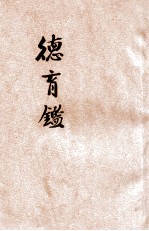 德育鑑